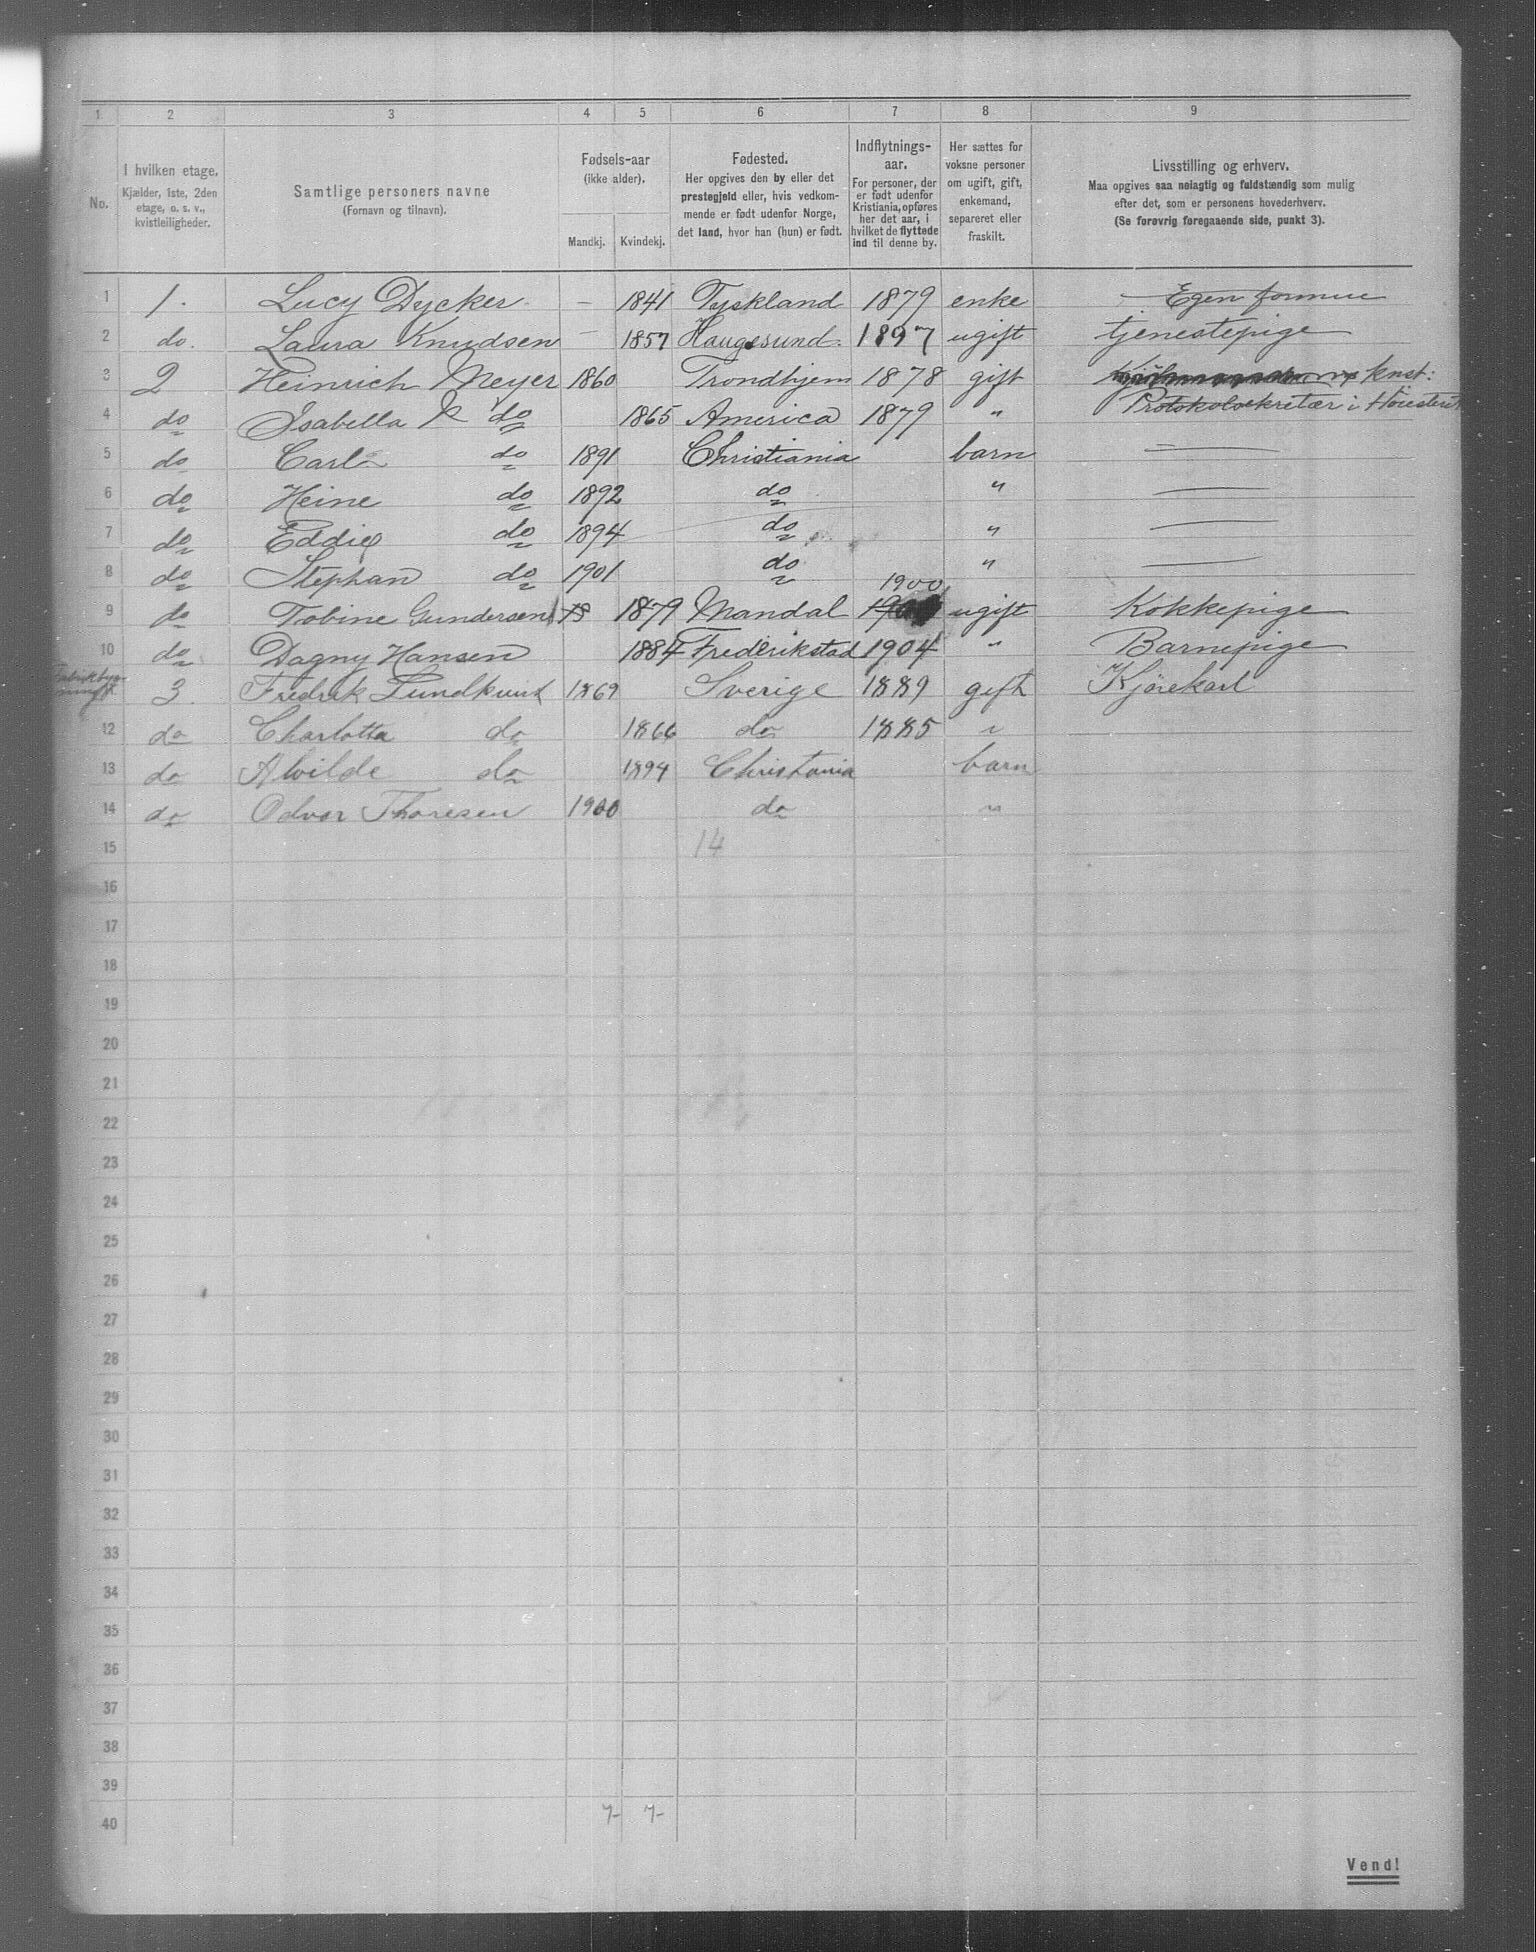 1 2 3 4 5 6 7 8 9
No.
I hvilken etage.
Kjælder, 1ste, 2den
etage, o. s. v.,
kvistleiligheder.
Samtlige personers navne
(Fornavn og tilnavn).
Fødsels-aar
(ikke alder).
Mandkj. Kvindekj.
Fødested.
Her opgives den by eller det
prestegjeld eller, hvis vedkom-
mende er født udenfor Norge,
det land, hvor han (hun) er født.
Indflytnings-
aar.
For personer, der
er født udenfor
Kristiania, opføres
her det aar, i
hvilket de flyttede
ind til denne by.
Her sættes for
voksne personer
om ugift, gift,
enkemand,
separeret eller
fraskilt.
Livsstilling og erhverv.
Maa opgives saa nøiagtig og fuldstændig som mulig
efter det, som er personens hovederhverv.
(Se forøvrig foregaaende side, punkt 3).
1 1. Lucy Dycker. – 1841 Tyskland 1879 enke Egen formue
2 do. Laura Knudsen – 1857 Haugesund. 1897 ugift tjenestepige
3 2 Heinrich Meyer 1860 Trondhjem 1878 gift knst:
Protokolsekretær i Høiesteret
4 do Isabella K do 1865 America 1879 "
5 do Carl do 1891 Christiania barn —
6 do Heine do 1892 do " —
7 do Eddie do 1894 do " —
8 do Stephan do 1901 do " —
1900
9 do Tobine Gundersen 18 1879 Mandal ugift Kokkepige
10 do Dagny Hansen 1884 Frederikstad 1904 " Barnepige
3. Fredrik 1869 Sverige 1889 gift Kjørekarl
12 do Charlotta do 1866 do 1885 "
13 do Alvilde do 1894 Christania barn
14 do Odvar Thoresen 1900 do "
14
15
16
17
18
19
20
21
22
23
24
25
26
27
28
29
30
31
32
33
34
35
36
37
38
39
40
7- 7-
Vend!